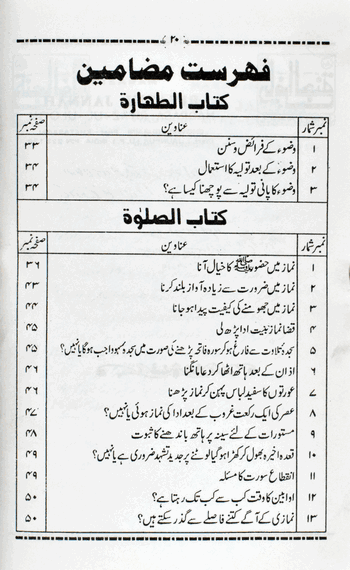 ۲۰
فہرست مضامین
کتاب الطہارۃ
نمبر شمار عناوین صفحہ نمبر
۱ وضوء کے فرائض وسنن ۳۳
۲ وضوء کے بعد تولیہ کا استعمال ۳۴
۳ وضوء کا پانی تولیہ سے پوچھنا کیسا ہے؟ ۳۴
کتاب الصلوٰۃ
نمبر شمار عناوین صفحہ نمبر
۱ نماز میں حضور ﷺ کا خیال آنا ۳۶
۲ نماز میں ضرورت سے زیادہ آواز بلند کرنا ۴۳
۳ نماز میں جھومنے کی کیفیت پیدا ہو جانا ۴۴
۴ قضا نماز بنیت ادا پڑھ لی ۴۵
۵ سجدۂ تلاوت سے فارغ ہو کر سورہ فاتحہ پڑھنے کی صورت میں سجدہ سہو واجب ہوگا یا نہیں؟ ۴۵
۶ اذان کے بعد ہاتھ اٹھا کر دعا مانگنا ۴۶
۷ عورتوں کا سفید لباس پہن کر نماز پڑھنا ۴۶
۸ عصر کی ایک رکعت غروب کے بعد ادا کی نماز ہوئی یا نہیں؟ ۴۷
۹ مستورات کے لئے سینہ پر ہاتھ باندھنے کا ثبوت ۴۸
۱۰ قعدہ اخیرہ بھول کر کھڑا ہو گیا لوٹنے پر جدید تشہد ضروری ہے یا نہیں؟ ۴۹
۱۱ انقطاع سورت کا مسئلہ ۴۹
۱۲ اوابین کا وقت کب سے کب تک رہتا ہے؟ ۵۰
۱۳ نمازی کے آگے کتنے فاصلے سے گذر سکتے ہیں؟ ۵۰